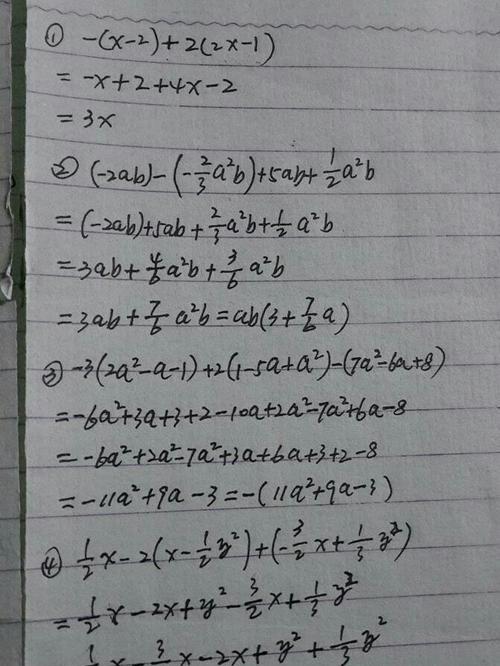 ① -(x-2)+2(2x-1)
= -x+2+4x-2
= 3x
② (-2ab)-(-2/3a²b)+5ab+1/2a²b
=(-2ab)+5ab+2/3a²b+1/2a²b
=3ab+4/6a²b+3/6a²b
=3ab+7/6a²b=ab(3+7/6a)
③ -3(2a²-a-1)+2(1-5a+a²)-(7a²-6a+8)
=-6a²+3a+3+2-10a+2a²-7a²+6a-8
=-6a²+2a²-7a²+3a+6a+3+2-8
=-11a²+9a-3=-(11a²+9a-3)
④ 1/2x-2(x-1/2y²)+(-3/2x+1/3y²)
=1/2x-2x+y²-3/2x+1/3y²
1/2x-3/2x-2x+y²+1/3y²